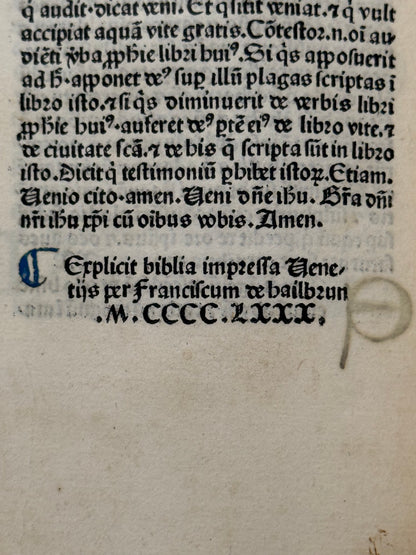 q̄ audit·dicat veni. Et q̄ sitit veniat·⁊ q̄ vult
accipiat aquā vite gratis. Cōtestor.n.oī au
diēti v̄ba ꝓphīe libri huiꝰ. Si q̄s apposuerit
ad h̄·apponet deꝰ sup̱ illū plagas scriptas ī
libro isto·⁊ si q̄s diminuerit de verbis libri
ꝓphīe huiꝰ·auferet deꝰ ꝑtē eiꝰ de libro vite·⁊
de ciuitate sc̄a·⁊ de his q̄ scripta sūt in libro
isto. Dicit q̄ testimoniū ꝑhibet istoꝝ. Etiam.
Uenio cito·amen. Ueni dn̄e ihu. Gr̄a dn̄i
nr̄i ihu xp̄i cū oībus vobis. Amen.
Explicit biblia impressa Uene-
tijs per Franciscum de hailbrun
.M.CCCC.LXXX.